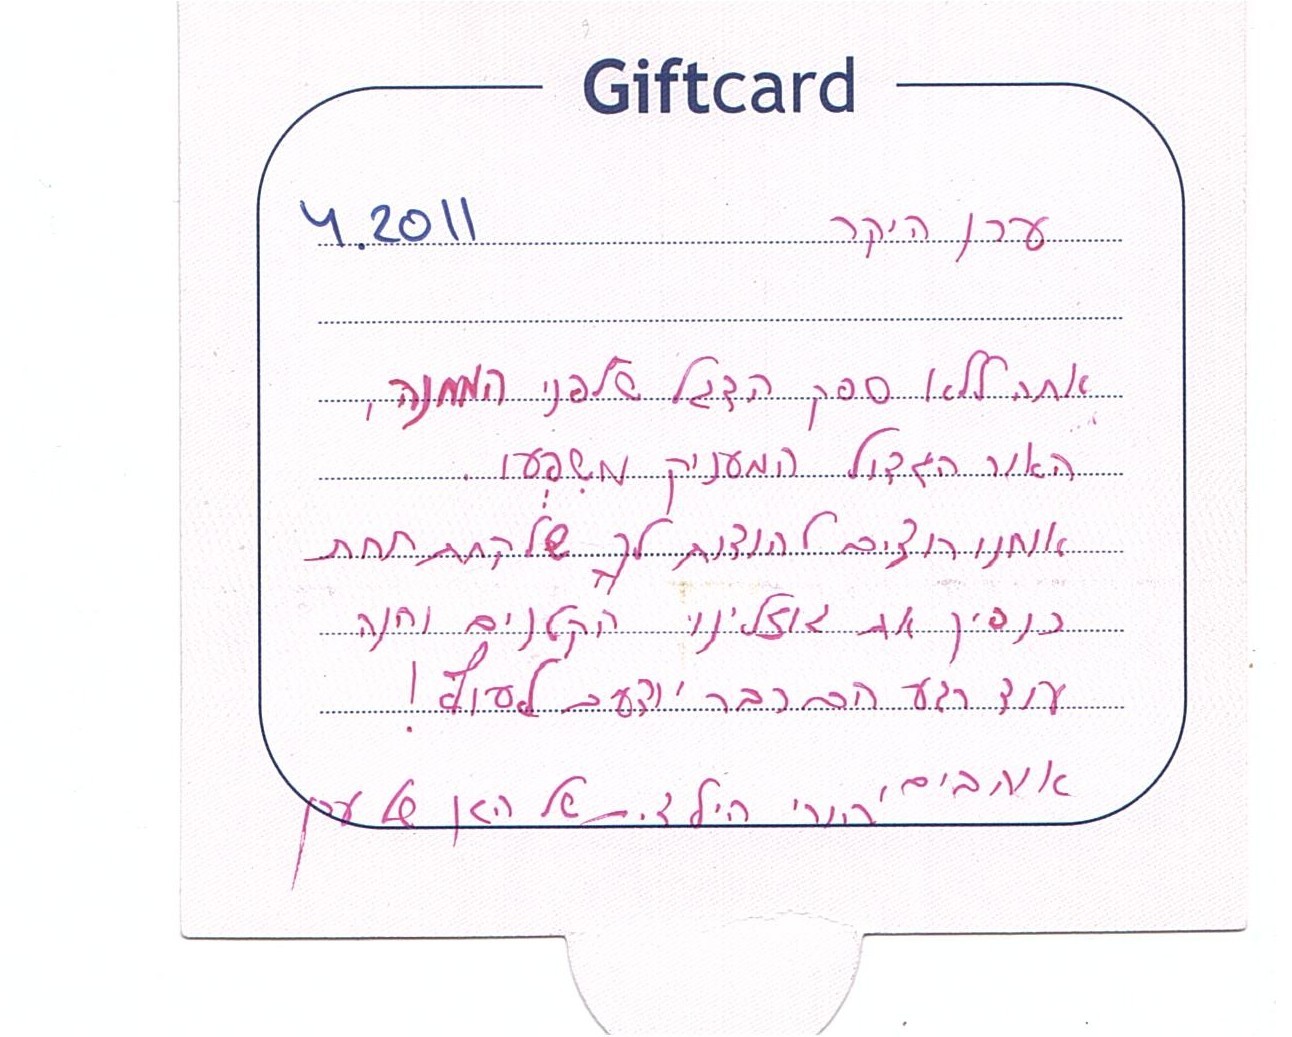 Giftcard
4.2011
ערן היקר
אתה ללא ספק הדגל שלפני המחנה,
האור הגדול המעניק משפעו.
אנחנו רוצים להודות לך שלקחת תחת
כנפיך את גוזלינו הקטנים והנה
עוד רגע הם כבר יודעים לעוף!
אוהבים, הורי הילדים של הגן של ערן